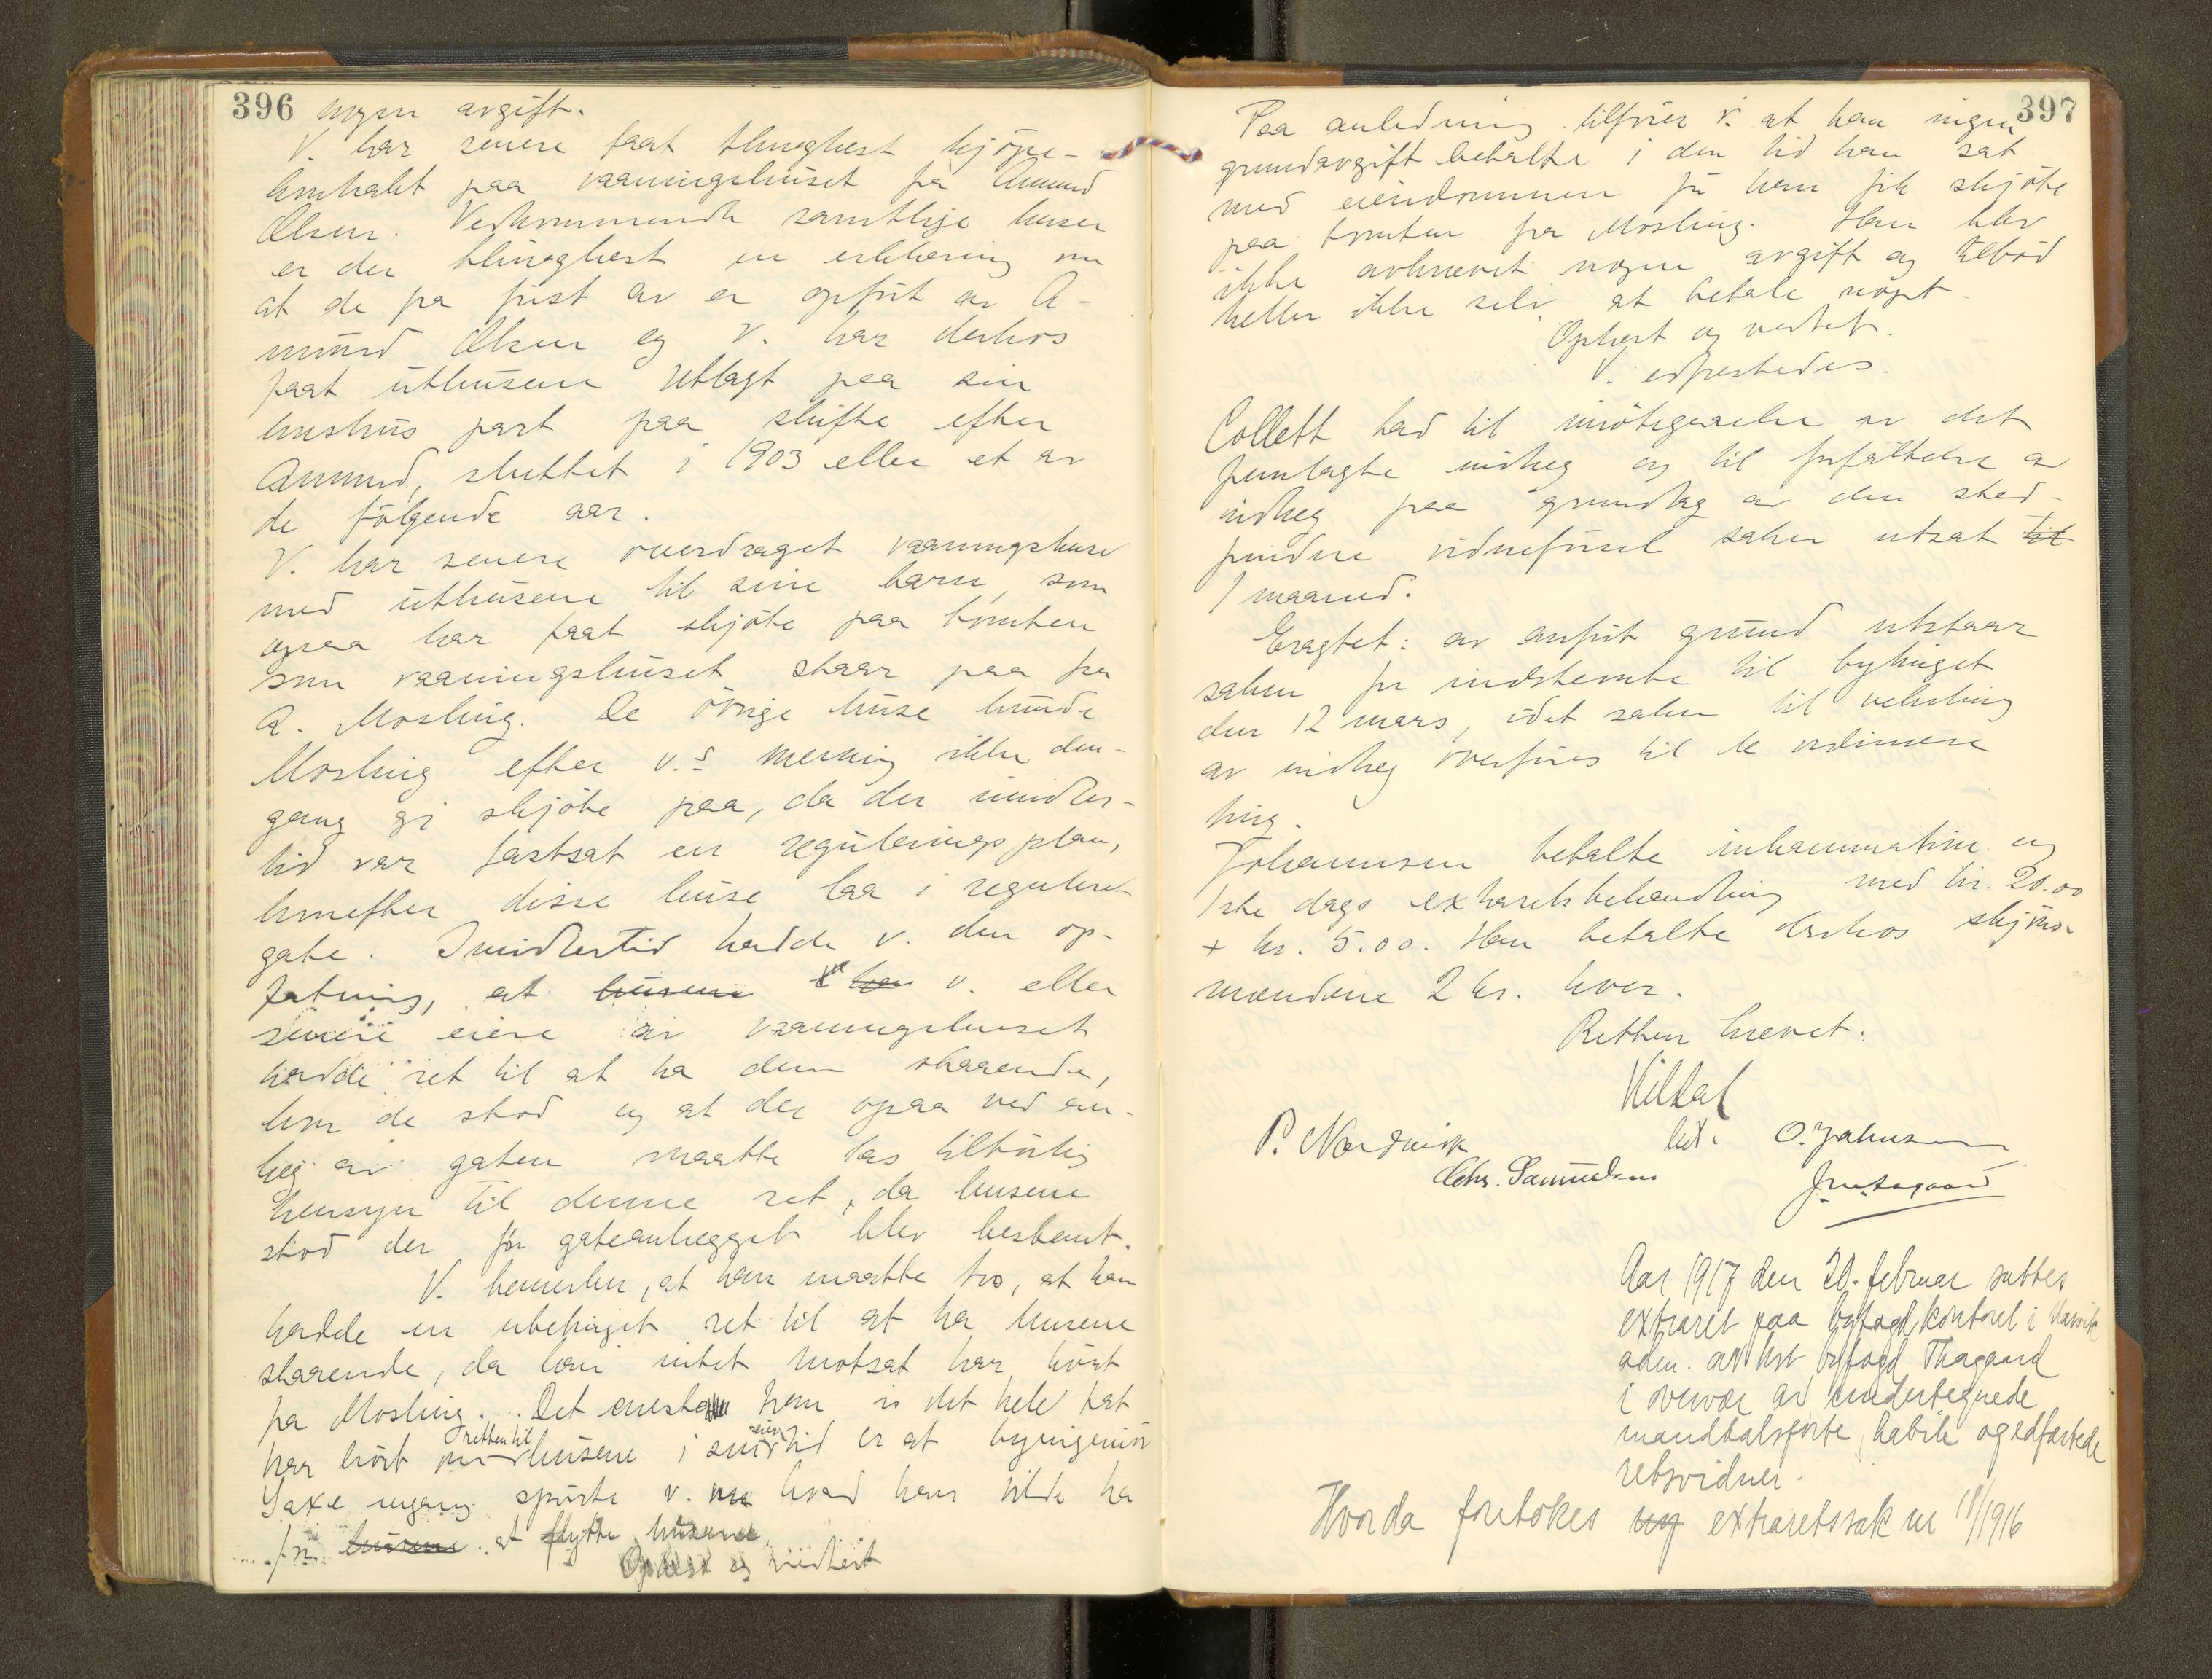 396 nogen avgift.
V. har senere faat thinglæst kjøpe-
kontrakt paa vaaningshuset fra Amund
Olsen. Vedkommende samtlige huser
er der thinglæst en erklæring om
at de fra først av er opført av A-
mund Olsen og V. har derhos
faat uthusene utlagt paa sin
hustrus part paa skifte efter
Amund, sluttet i 1903 eller et av
de følgende aar.
V. har senere overdraget vaaningshuset
med uthusene til sine barn, som
ogsaa har faat skjøte paa tomten
som vaaningshuset staar paa fra
A. Mosling. De øvrige huse kunde
Mosling efter v.s mening ikke den-
gang gi skjøte paa, da der imidler-
tid var fastsat en reguleringsplan,
hvorefter disse huse laa i reguleret
gate. Imidlertid hadde v. den op-
fatning, at husene han v. eller
senere eiere av vaaningshuset
hadde ret til at ha dem staaende,
hvor de stod og at der ogsaa ved an-
læg av gaten maatte tas tilbørlig
hensyn til denne ret, da husene
stod der før gateanlægget blev bestemt.
V. bemerker, at han maatte tro, at han
hadde en ubetinget ret til at ha husene
staaende, da han intet motsat har hørt
fra Mosling. Det eneste han i det hele tat
har hørt om retten til husene i sin eiertid er at byingeniør
Saxe engang spurte v. om hvad han vilde ha
for husene at flytte husene.
Oplæst og vedtat
397
Paa anledning tilføier v. at han ingen
grundavgift betalte i den tid han sat
med eiendommen før han fik skjøte
paa tomten fra Mosling. Han blev
ikke avkrævet nogen avgift og tilbød
heller ikke selv at betale noget.
Oplæst og vedtat.
V. edfæstedes.
Collett bad til imøtegaaelse av det
fremlagte indlæg og til forfattelse av
indlæg paa grundlag av den sted-
fundne vidneførsel saken utsat til
1 maaned.
Eragtet: av anført grund utstaar
saken for indstevnte til bythinget
den 12 mars, idet saken til veksling
av indlæg overføres til de ordinære
ting.
Johannsen betalte inkammation og
1ste dags extraretsbehandling med kr. 20.00
+ kr. 5.00. Han betalte derhos skjøns-
mændene 2 kr. hver.
Retten hævet.
Kildal
P. Nordvik
Chr. Samuelsen
Aar 1917 den 20. februar sattes
extraret paa byfogdkontoret i Narvik
adm. av kst. byfogd Thagaard
i overvær av undertegnede
mandtalsførte, habile og edfæstede
retsvidner.
Hvorda foretokes ny extraretssak nr 18/1916